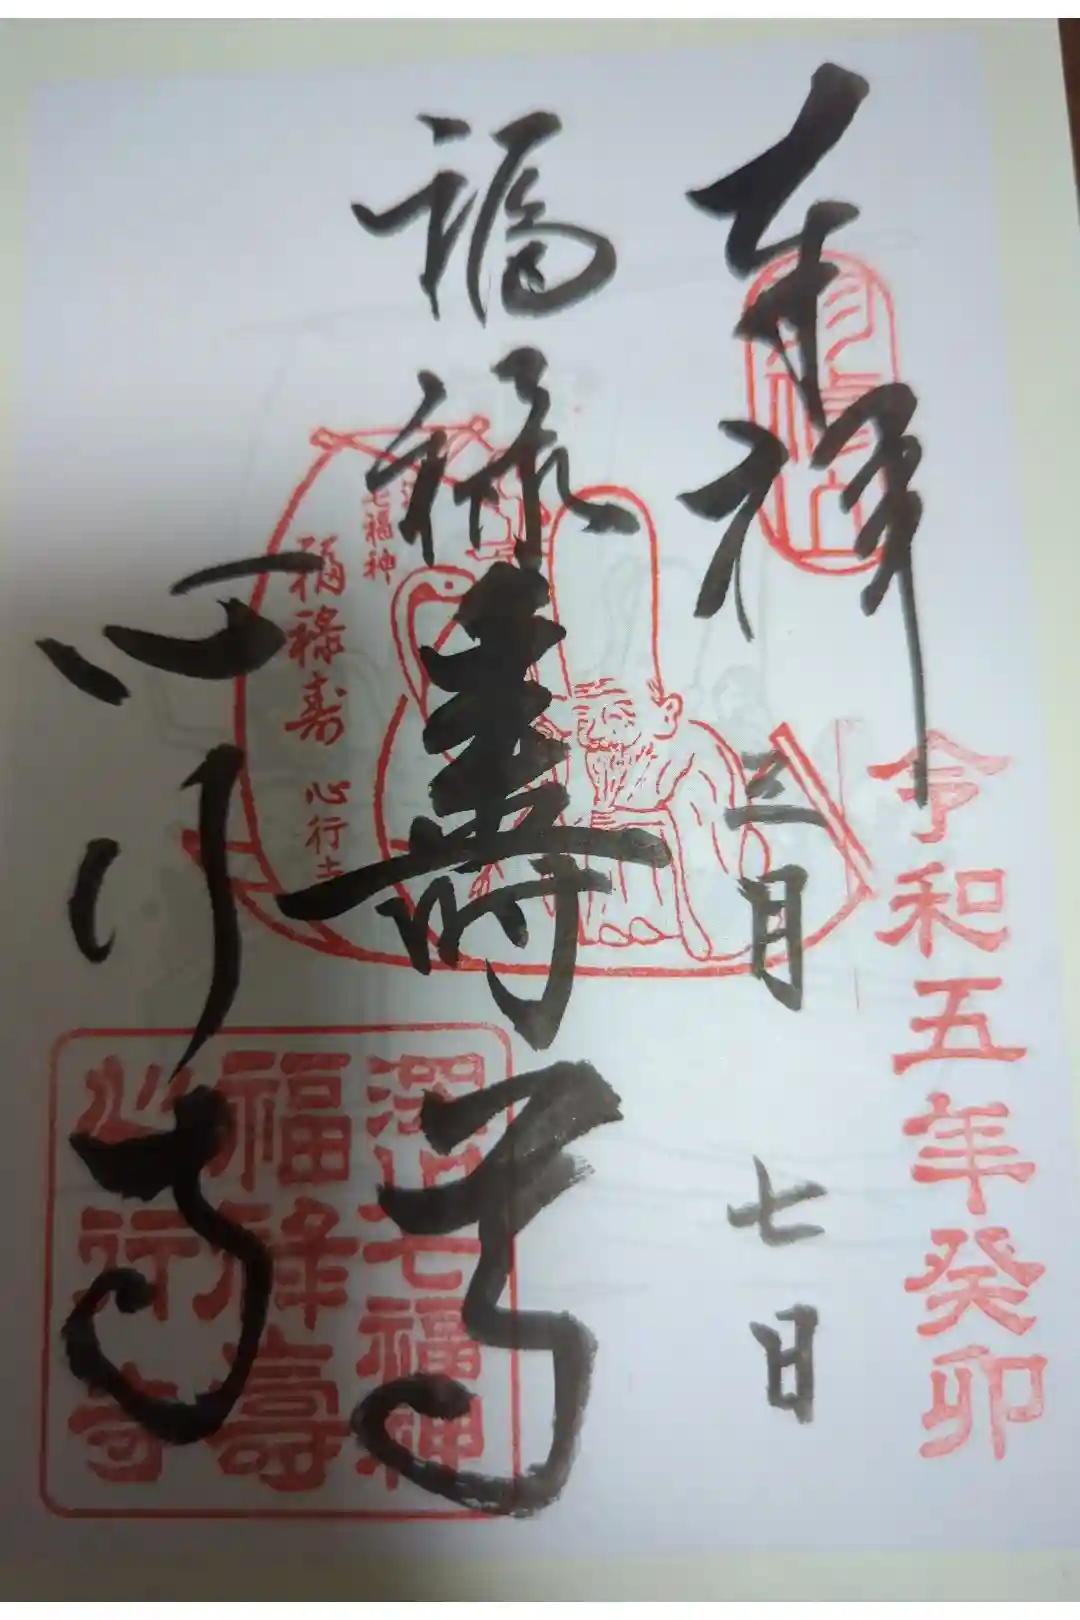 奉拝
令和五年癸卯
三月七日
福禄壽
心行寺
七福神
福禄寿 心行寺
深川七福神
福禄壽
心行寺